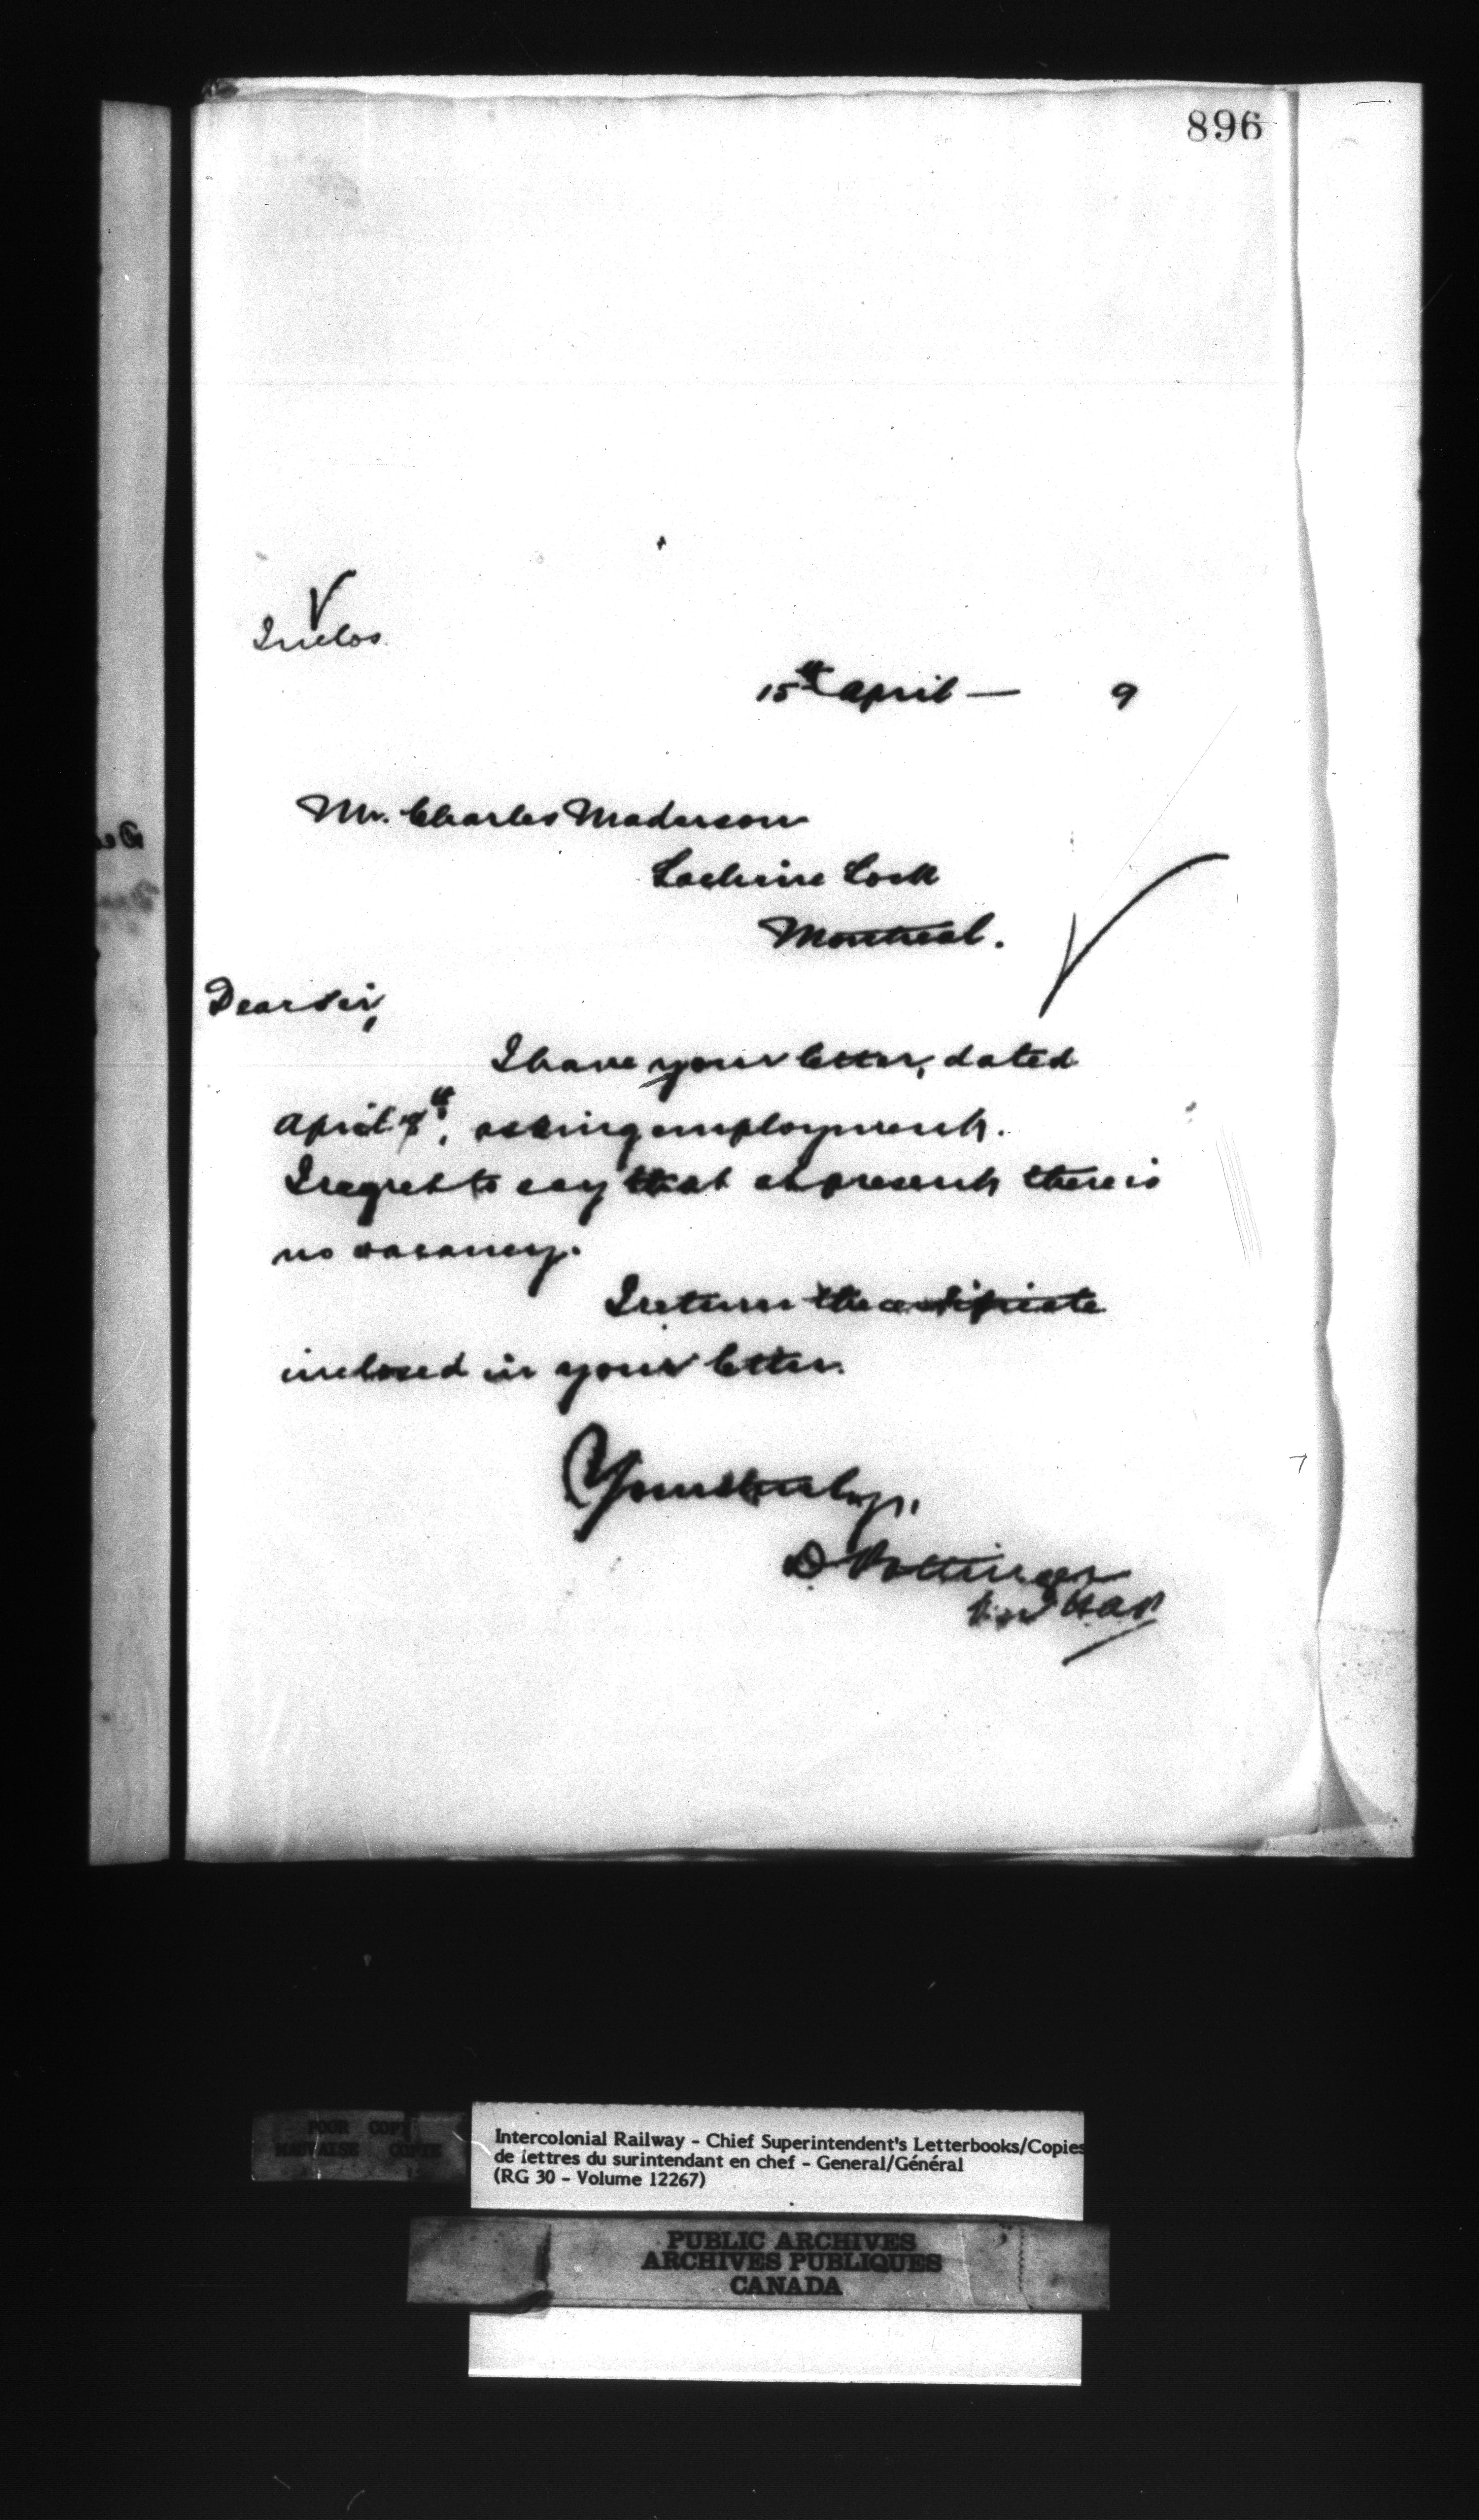 896
Inclos.
15th April — 9
Mr. Charles Maderson
Lachine Lock
Montreal.
Dear Sir,
I have your letter, dated
April 8th, asking employment.
I regret to say that at present there is
no vacancy.
I return the certificate
inclosed in your letter.
Yours truly,
D Pottinger
HAP
POOR COPY
MAUVAISE COPIE
Intercolonial Railway - Chief Superintendent's Letterbooks/Copies
de lettres du surintendant en chef - General/Général
(RG 30 - Volume 12267)
PUBLIC ARCHIVES
ARCHIVES PUBLIQUES
CANADA